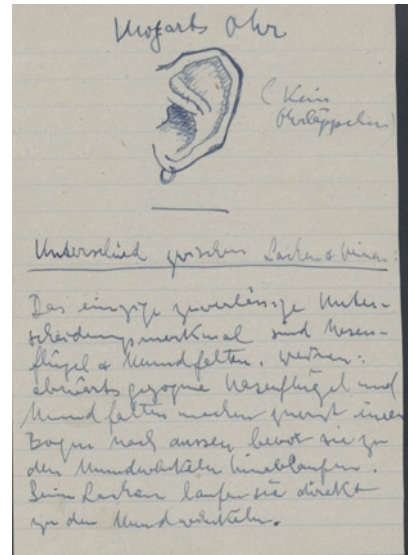 Mozarts Ohr
(Kein
Ohrläppchen)
Unterschied zwischen Lachen & Weinen:
Das einzige zuverlässige Unter-
scheidungsmerkmal sind Nasen-
flügel & Mundfalten. Weinen:
abwärts gezogne Nasenflügel und
Mundfalten machen zuerst einen
Bogen nach aussen bevor sie zu
den Mundwinkeln hinablaufen.
Beim Lachen laufen sie direkt
zu den Mundwinkeln.